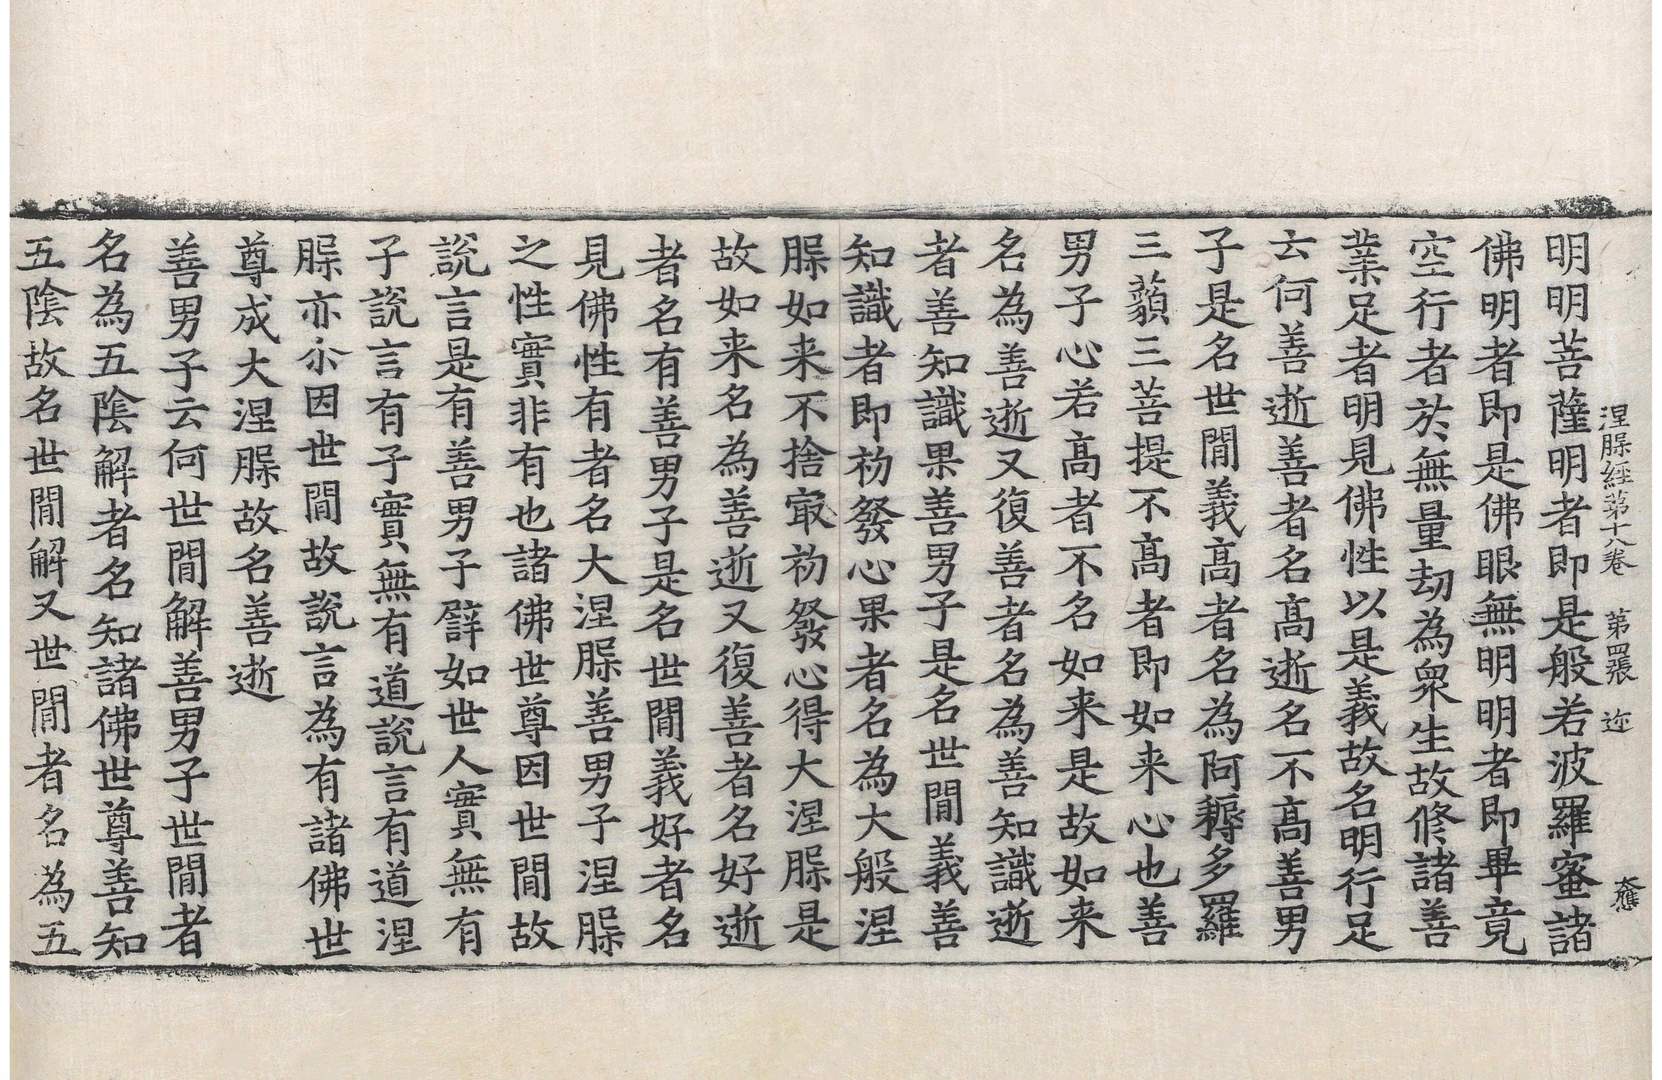 涅槃經第十八卷　第四張　迩
大應
明明菩薩明者即是般若波羅蜜諸
佛明者即是佛眼無明明者即畢竟
空行者於無量劫為衆生故修諸善
業足者明見佛性以是義故名明行足
云何善逝善者名髙逝名不髙善男
子是名世間義髙者名為阿耨多羅
三藐三菩提不髙者即如来心也善
男子心若髙者不名如来是故如来
名為善逝又復善者名為善知識逝
者善知識果善男子是名世間義善
知識者即初發心果者名為大般涅
槃如来不捨㝡初發心得大涅槃是
故如来名為善逝又復善者名好逝
者名有善男子是名世間義好者名
見佛性有者名大涅槃善男子涅槃
之性實非有也諸佛世尊因世間故
說言是有善男子譬如世人實無有
子說言有子實無有道說言有道涅
槃亦尒因世間故說言為有諸佛世
尊成大涅槃故名善逝
善男子云何世間解善男子世間者
名為五陰解者名知諸佛世尊善知
五陰故名世間解又世間者名為五